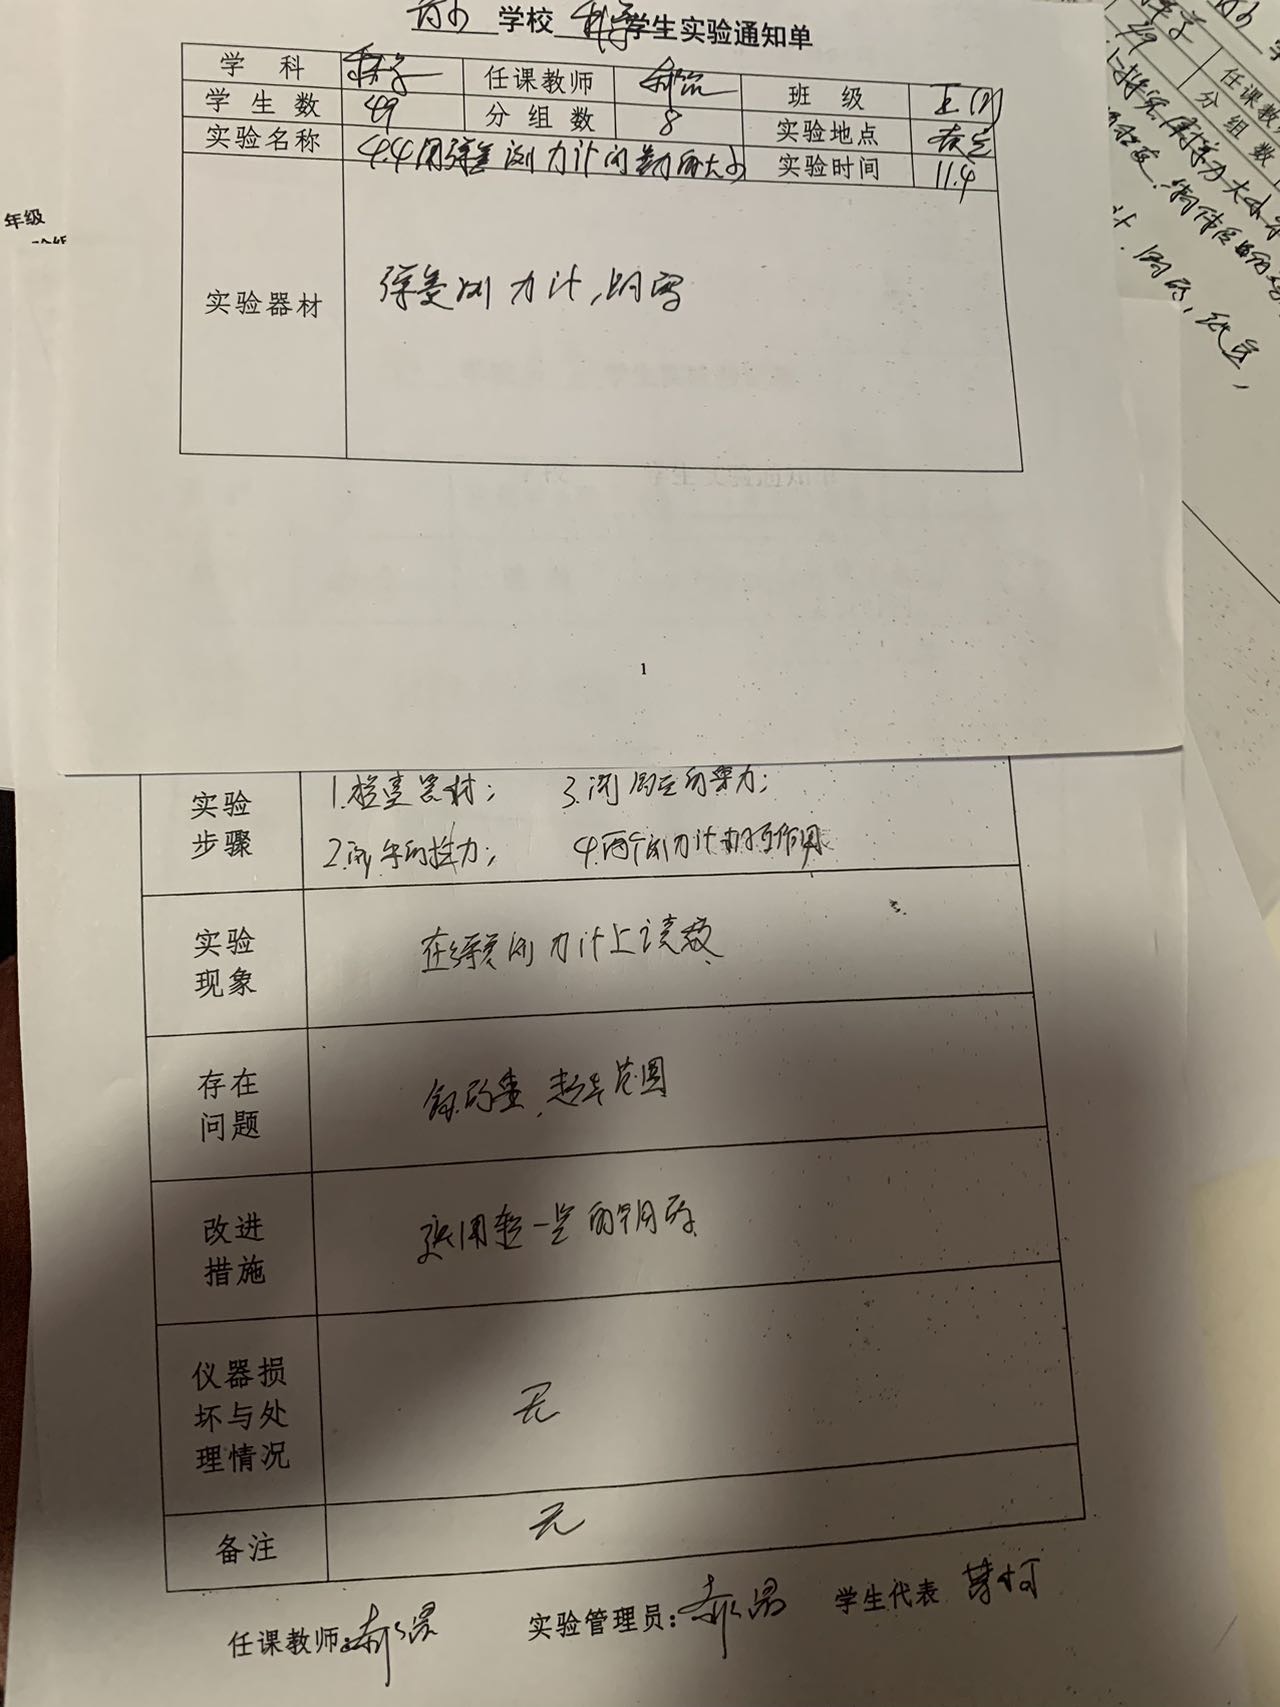 学校 科学 学生实验通知单
学 科 科学 任课教师 班 级 五(2)
学 生 数 49 分 组 数 8 实验地点
实验名称 4.4用弹簧测力计测量力的大小 实验时间 11.4
实验器材 弹簧测力计,钩码
1
年级
任课教
分 组 数
49
实验
步骤
1.检查器材; 3.测钩码的重力;
2.测手的拉力; 4.两个测力计相互作用
实验
现象
在弹簧测力计上读数
存在
问题
钩码重,超出范围
改进
措施
选用轻一些的钩码
仪器损
坏与处
理情况
无
备注
无
任课教师: 实验管理员: 学生代表